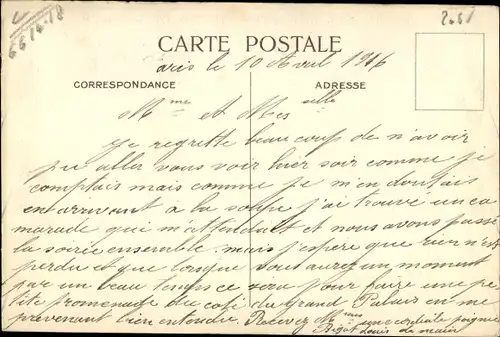 6614-18
2.51
CARTE POSTALE
Paris le 10 Avril 1916
CORRESPONDANCE
ADRESSE
Mme et Mesdelle
Je regrette beaucoup de n'avoir
pu aller vous voir hier soir comme je
comptais mais comme je m'en doutais
en arrivant à la soupe j'ai trouvé un ca
marade qui m'attendait et nous avons passé
la soirée ensemble. mais j'espère que rien n'est
perdu et que lorsque vous aurez un moment
par un beau temps ce sera pour faire une pe
tite promenade du coté du Grand Palais en me
prévenant bien entendu. Recevez Mmes une cordiale poignée
de main
Bigot Louis